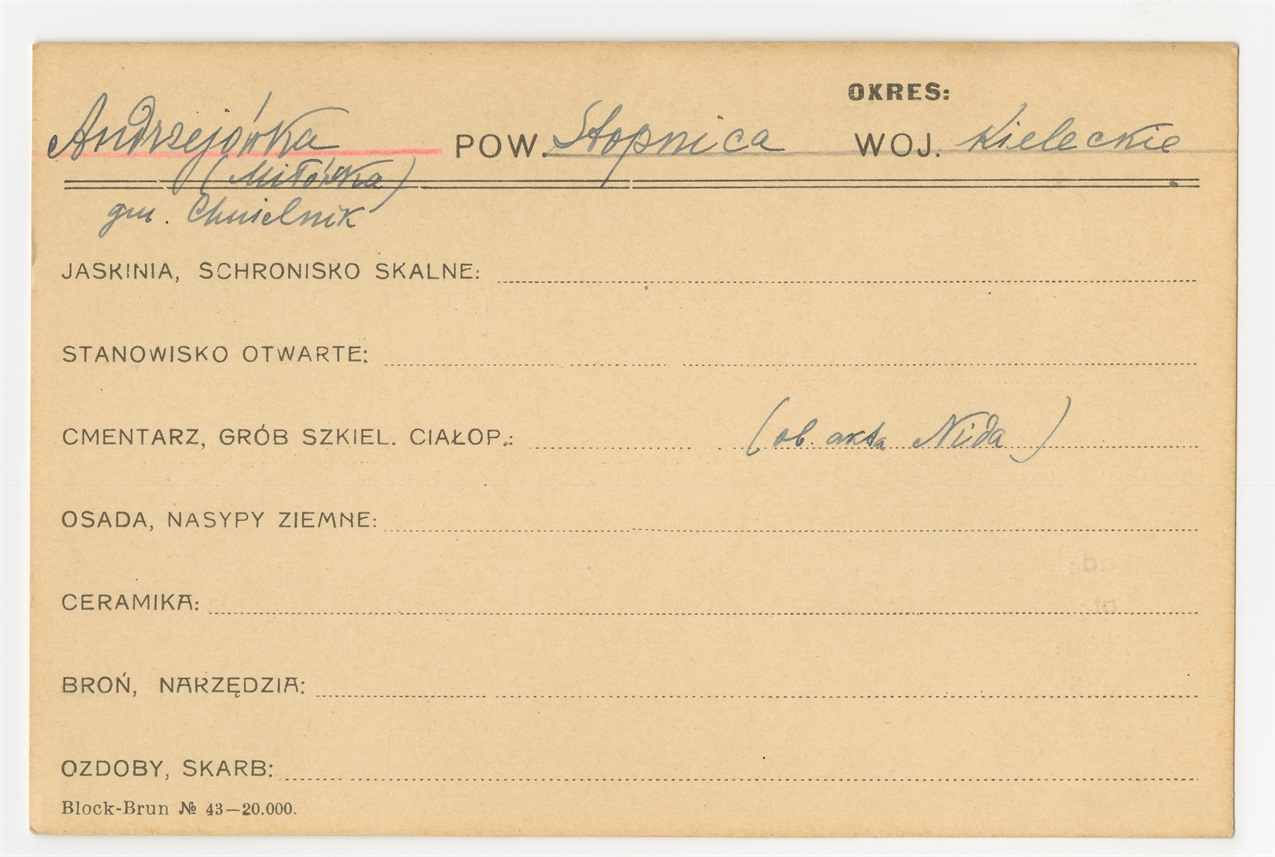 OKRES:
Andrzejówka POW. Stopnica WOJ. Kieleckie
(Miłówka)
gm. Chmielnik
JASKINIA, SCHRONISKO SKALNE:
STANOWISKO OTWARTE:
CMENTARZ, GRÓB SZKIEL. CIAŁOP.: (ob. akta Nida)
OSADA, NASYPY ZIEMNE:
CERAMIKA:
BROŃ, NARZĘDZIA:
OZDOBY, SKARB:
Block-Brun № 43—20.000.